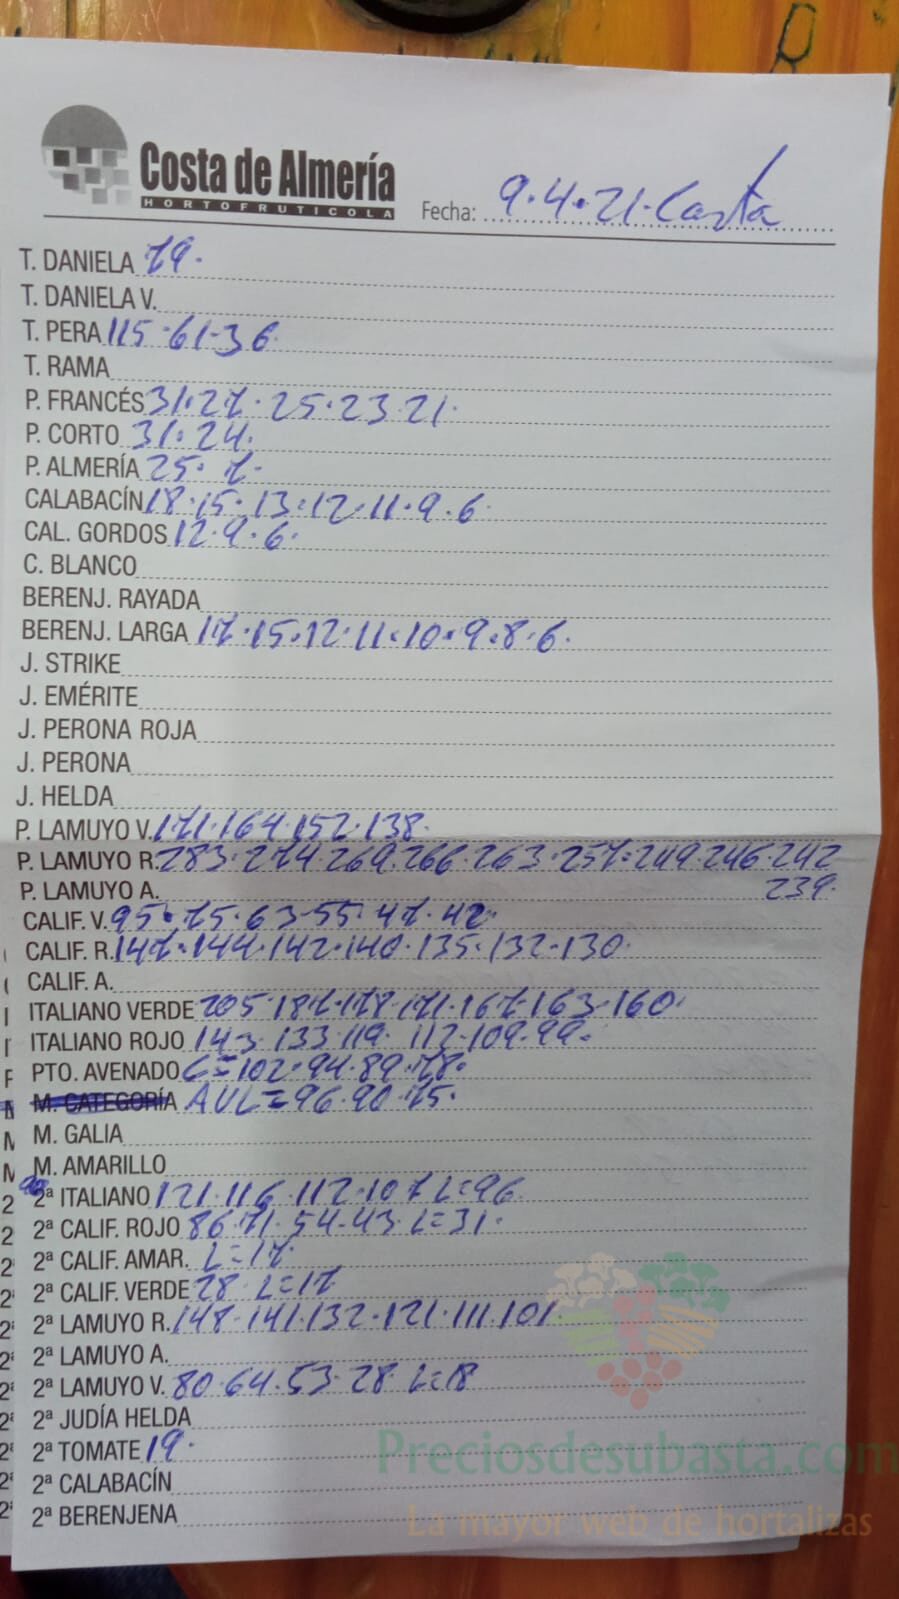 Costa de Almería
HORTOFRUTICOLA
Fecha: 9.4.21. Costa
T. DANIELA 79.
T. DANIELA V.
T. PERA 115.61.36
T. RAMA
P. FRANCÉS 31.27.25.23.21.
P. CORTO 31.24.
P. ALMERÍA 25.7.
CALABACÍN 18.15.13.12.11.9.6
CAL. GORDOS 12.9.6.
C. BLANCO
BERENJ. RAYADA
BERENJ. LARGA 17.15.12.11.10.9.8.6.
J. STRIKE
J. EMÉRITE
J. PERONA ROJA
J. PERONA
J. HELDA
P. LAMUYO V. 171.164.152.138.
P. LAMUYO R. 283.274.269.266.263.257.249.246.242
P. LAMUYO A. 239.
CALIF. V. 95.75.63.55.47.42.
CALIF. R. 147.144.142.140.135.132.130.
CALIF. A.
ITALIANO VERDE 205.187.178.171.167.163.160.
ITALIANO ROJO 143.133.119.112.109.99.
PTO. AVENADO C=102.94.89.78.
M. CATEGORÍA AVL=96.90.75.
M. GALIA
M. AMARILLO
2ª ITALIANO 121.116.112.107 L=96
2ª CALIF. ROJO 86.71.54.43. L=31.
2ª CALIF. AMAR. L=17.
2ª CALIF. VERDE 28 L=17
2ª LAMUYO R. 148.141.132.121.111.101
2ª LAMUYO A.
2ª LAMUYO V. 80.64.53.28. L=18
2ª JUDÍA HELDA
2ª TOMATE 19.
2ª CALABACÍN
2ª BERENJENA
Preciosdesubasta.com
La mayor web de hortalizas